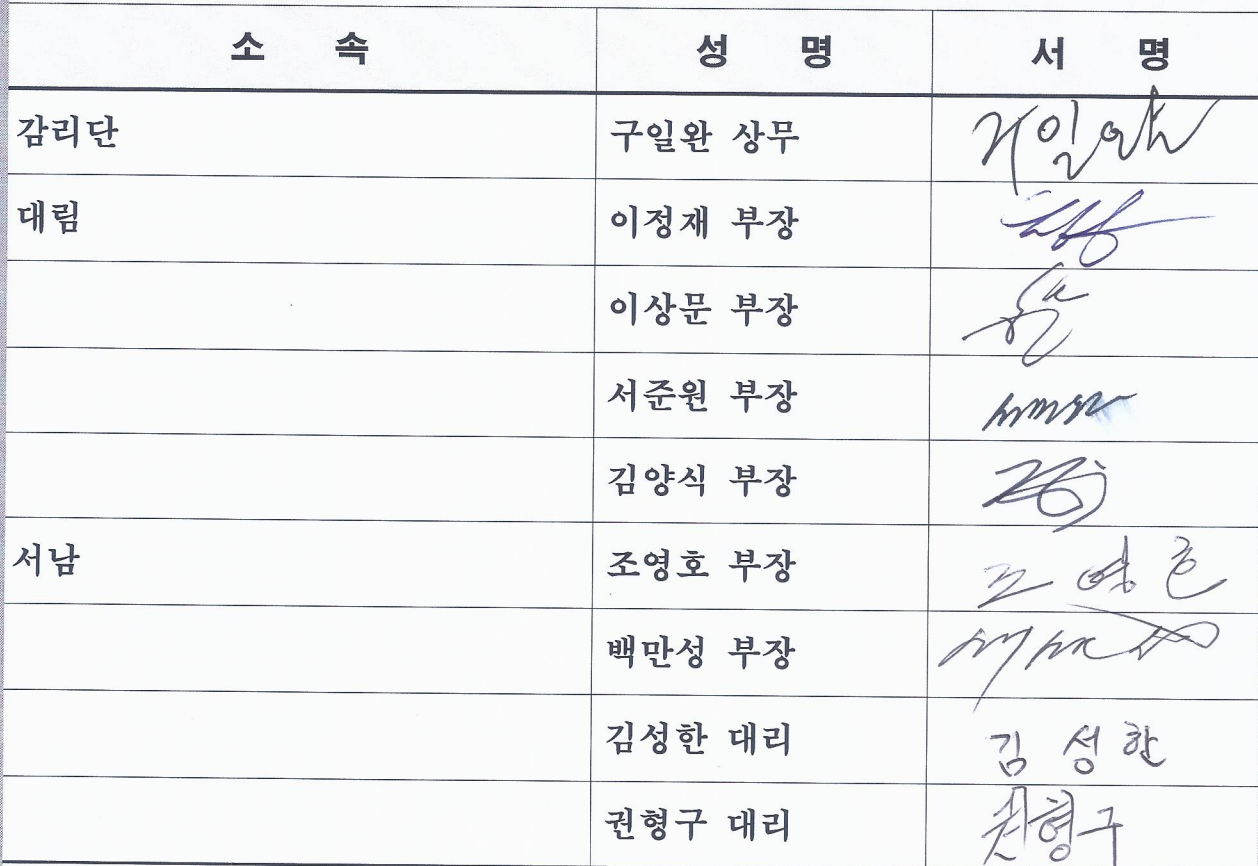 소 속 성 명 서 명
감리단 구일완 상무 구일완
대림 이정재 부장
이상문 부장
서준원 부장
김양식 부장
서남 조영호 부장 조영호
백만성 부장
김성한 대리 김성한
권형구 대리 권형구